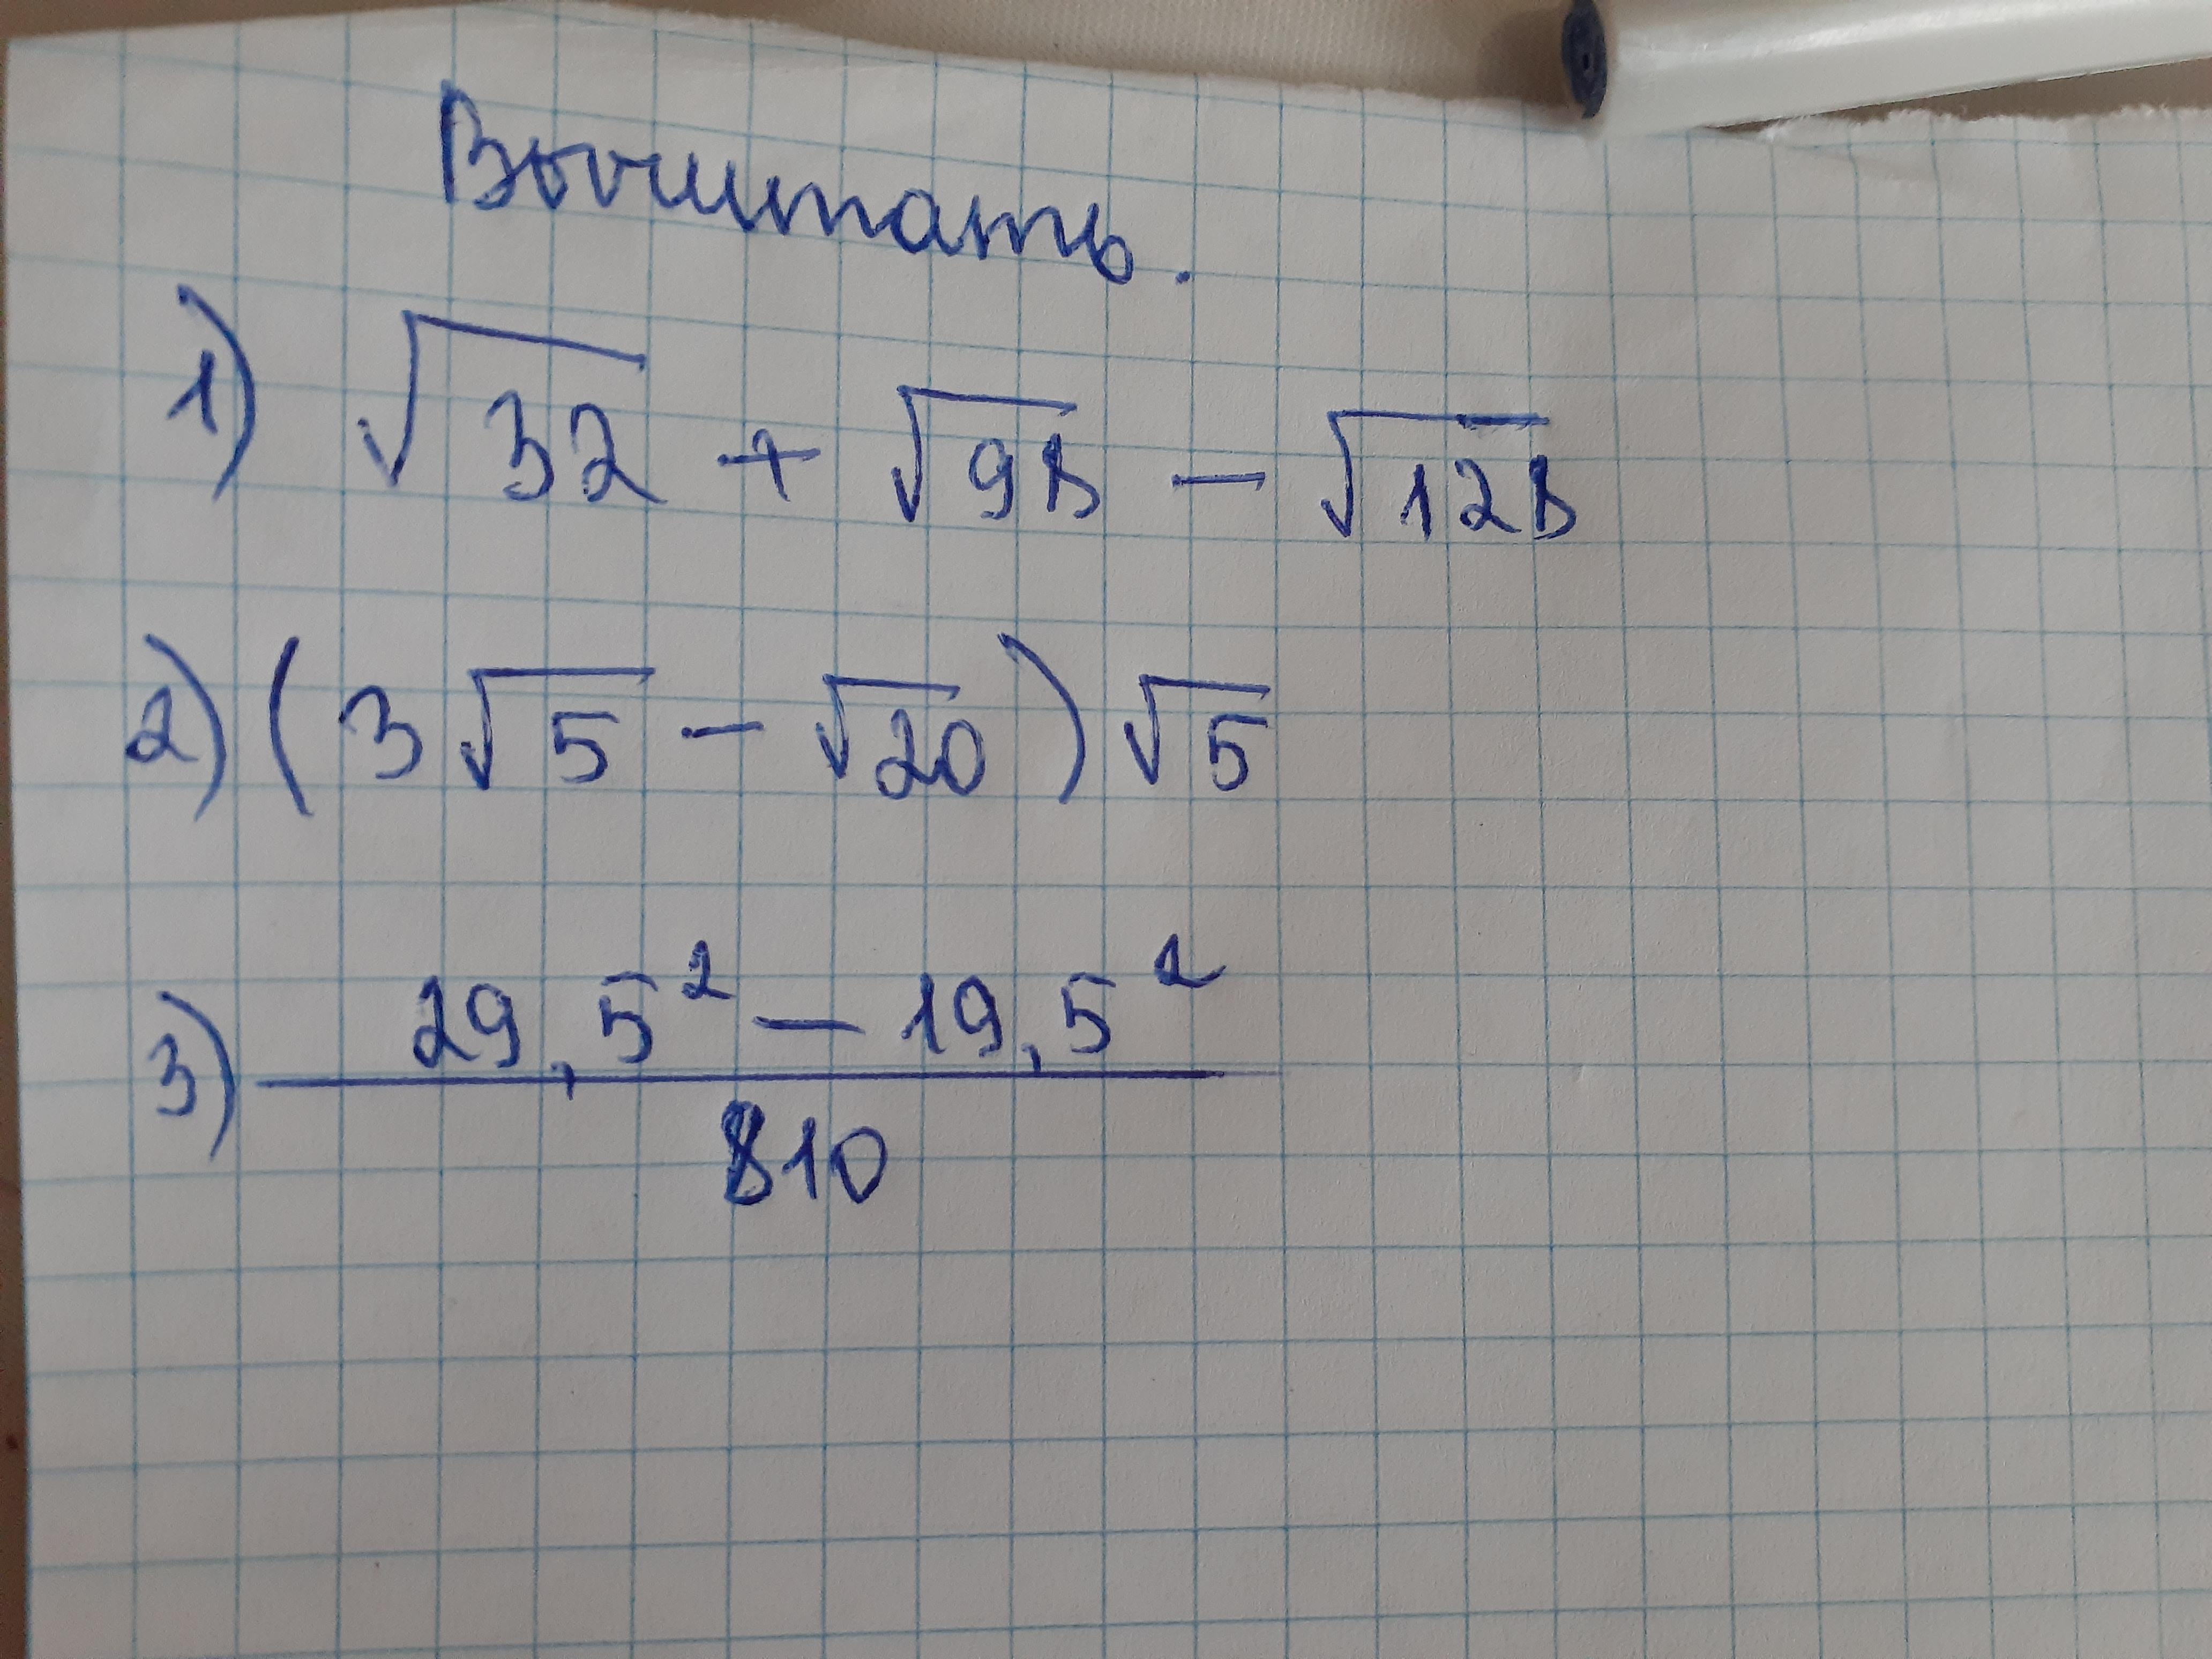 Вычитать.
1) √32 + √98 - √128
2) (3√5 - √20)√5
3) 29,5² - 19,5²
810